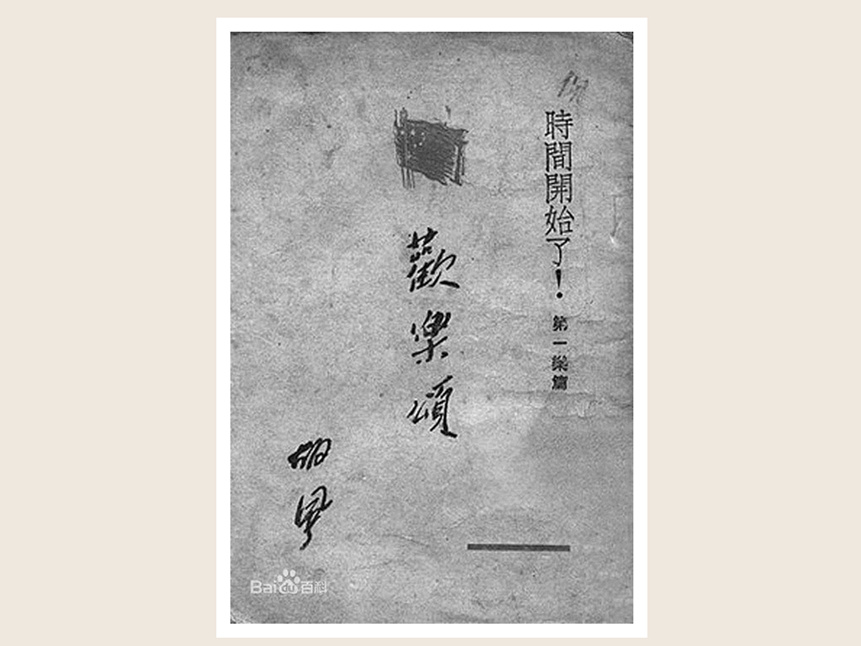 時間開始了！
第一樂篇
歡樂頌
胡風
Bai du 百科